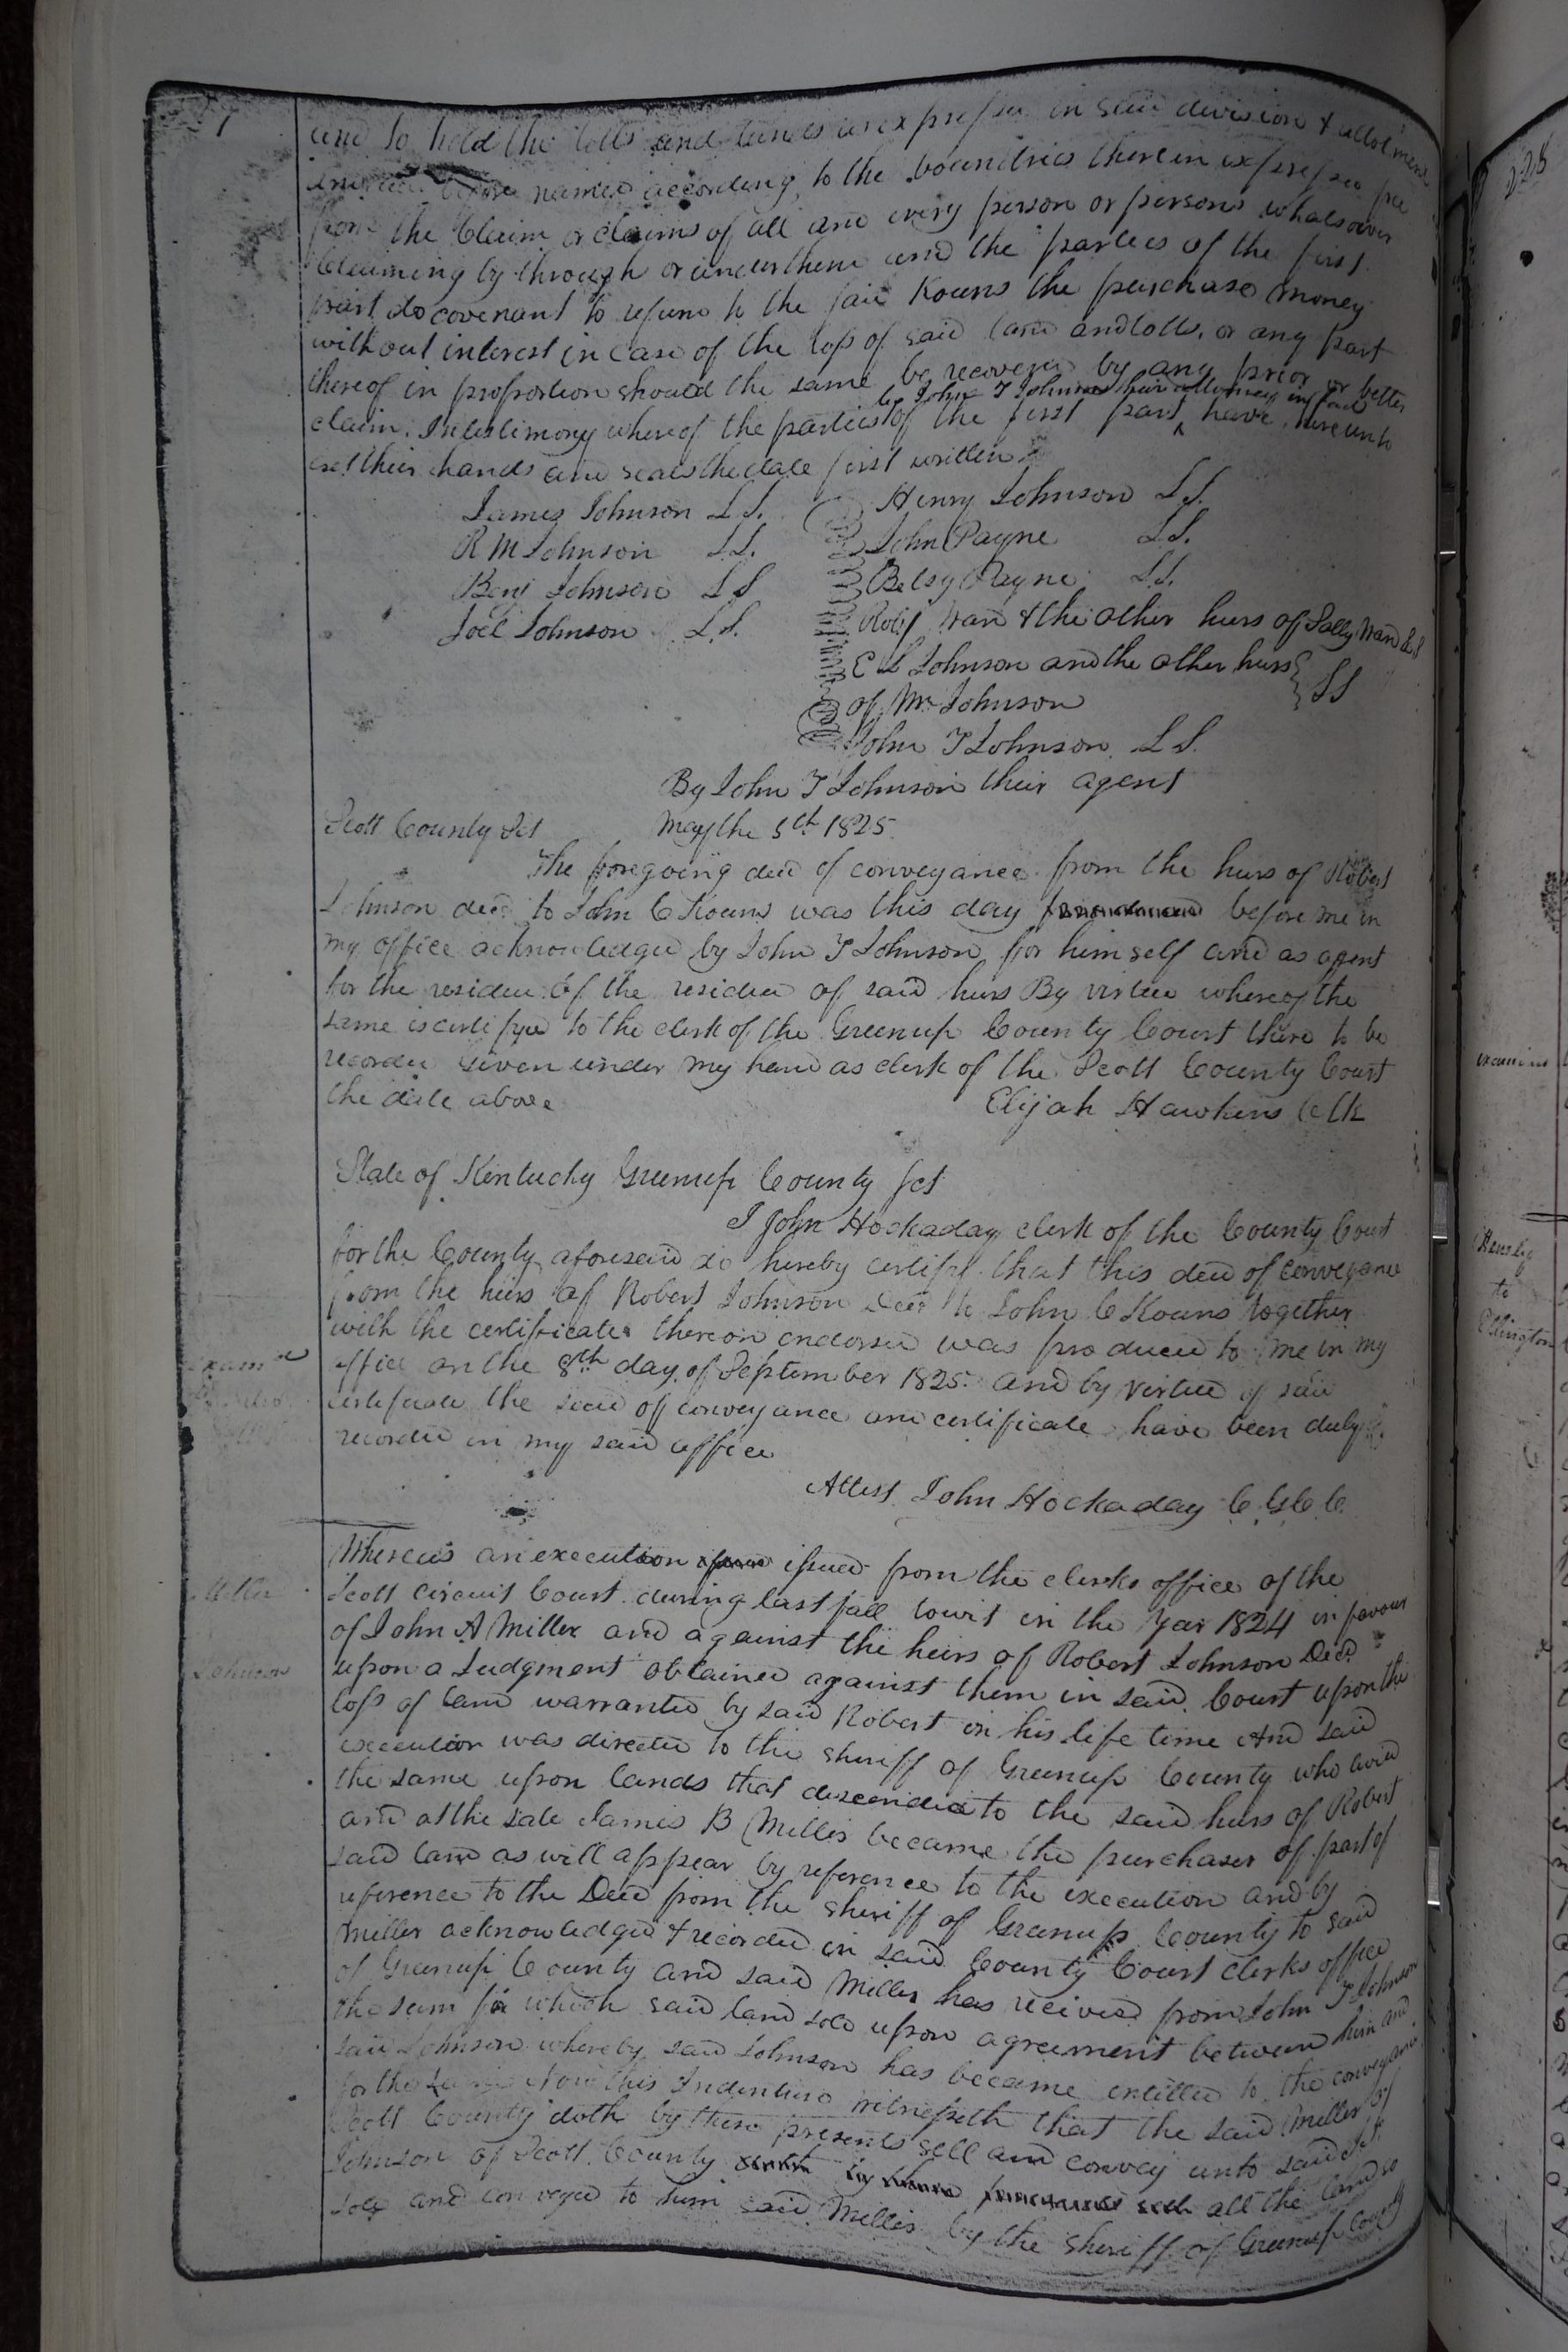 and to hold the lotts and lands as expressed in said division & allotment
before named according to the boundries therein expressed free
from the Claim or claims of all and every person or persons whatsoever
Claiming by through or under them and the parties of the first
part do covenant to refund to the said Kouns the purchase money
without interest in case of the loss of said land and lotts, or any part
thereof in proportion should the same be recovered by any prior or better
by John T Johnson their attorney in fact
claim. In testimony whereof the parties of the first part ^ have hereunto
set their hands and seals the date first written
James Johnson L.S. Henry Johnson L.S.
R M Johnson L.S. John Payne L.S.
Benj Johnson L S Betsy Payne L.S.
Joel Johnson L.S. Robt Ward & the other heirs of Sally Ward L S
E L Johnson and the other heirs
of Wm Johnson L S
John T Johnson L S.
By John T Johnson their agent
Scott County Sct May the 5th 1825
The foregoing deed of conveyance from the heirs of Robert
Johnson decd to John C Kouns was this day before me in
my office acknowledged by John T Johnson for himself and as agent
for the residue of the residue of said heirs By virtue whereof the
same is certifyed to the clerk of the Greenup County Court there to be
recorded Given under my hand as clerk of the Scott County Court
the date above Elijah Hawkins Clk
State of Kentucky Greenup County sct
I John Hockaday clerk of the County Court
for the County aforesaid do hereby certify that this deed of conveyance
from the heirs of Robert Johnson Decd to John C Kouns together
with the certificate thereon endorsed was produced to me in my
Examd office on the 8th day of September 1825. and by virtue of said
certificate the deed of conveyance and certificate have been duly
recorded in my said office
Attest John Hockaday C G C C
Whereas an execution issued from the clerks office of the
Miller Scott Circuit Court during last fall towit in the year 1824 in favour
of John A Miller and against the heirs of Robert Johnson Decd
Johnson upon a Judgment obtained against them in said Court upon the
loss of land warranted by said Robert in his life time And said
execution was directed to the sheriff of Greenup County who levied
the same upon lands that descended to the said heirs of Robert
and at the sale James B Miller became the purchaser of part of
said land as will appear by reference to the execution and by
reference to the Deed from the sheriff of Greenup County to said
Miller acknowledged & recorded in said County Court clerks office
of Greenup County and said Miller has received from John T Johnson
the sum for which said land sold upon agreement between him and
said Johnson whereby said Johnson has became entitled to the conveyance
for the Now this Indenture witnesseth that the said Miller of
Scott County doth by these presents sell and convey unto said
Johnson of Scott County all the land so
sold and conveyed to him said Miller by the Sheriff of Greenup County
228
examined
Hensley
to
Ellington